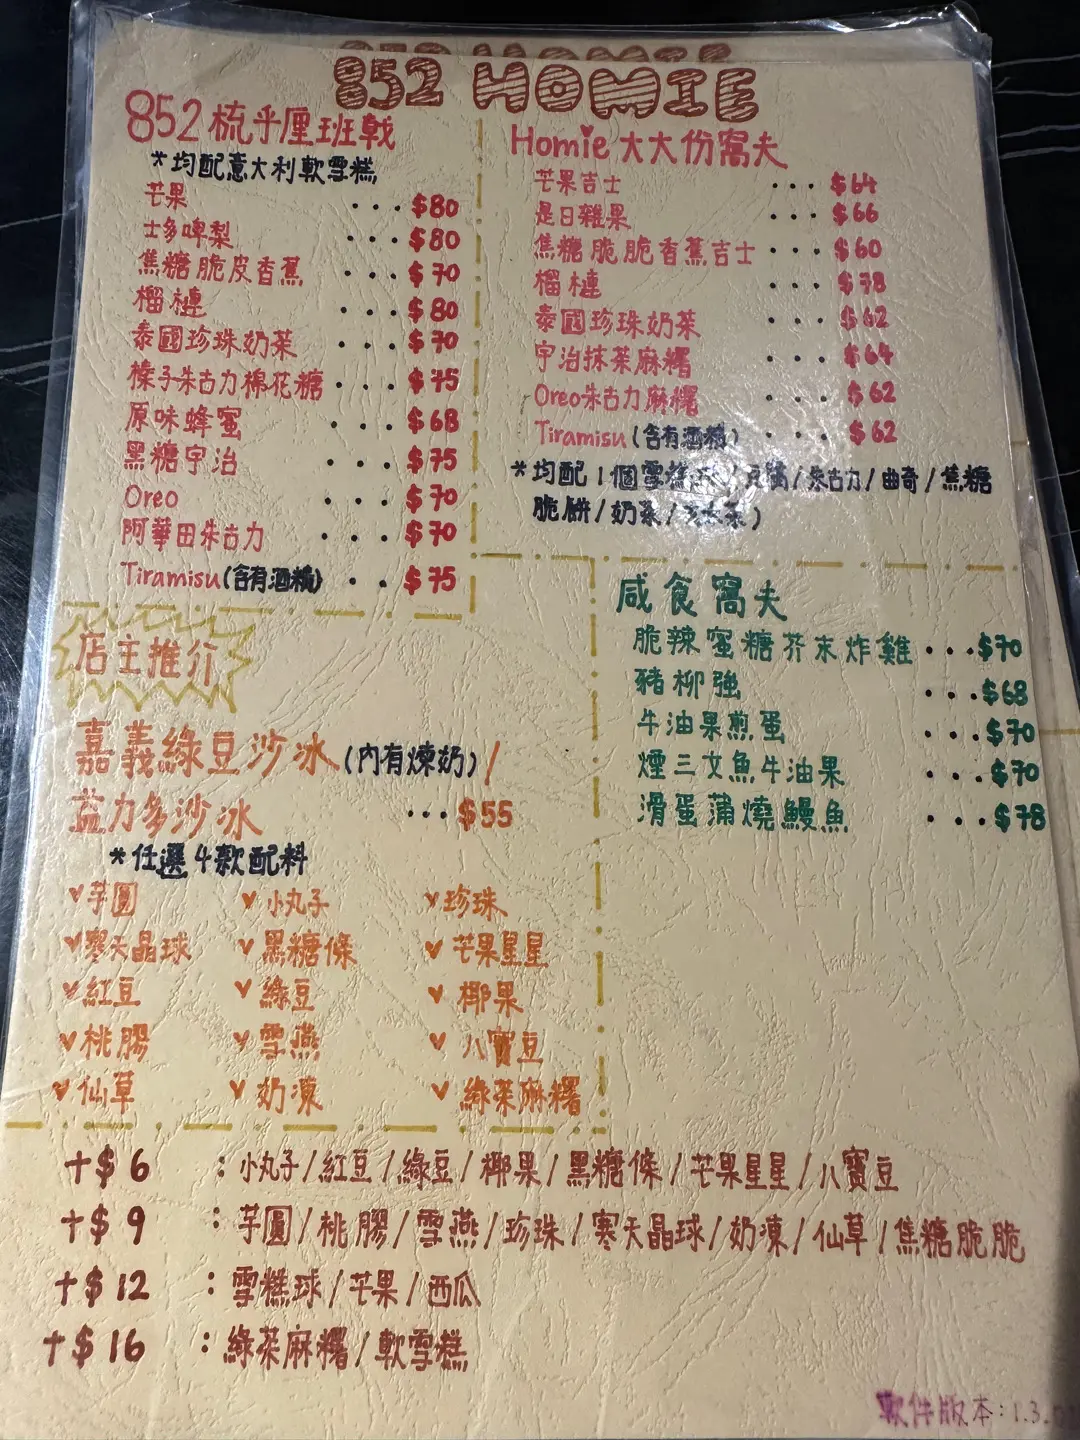 852 HOMIE
852梳乎厘班戟
*均配意大利軟雪糕
芒果 ... $80
士多啤梨 ... $80
焦糖脆皮香蕉 ... $70
榴槤 ... $80
泰國珍珠奶茶 ... $70
榛子朱古力棉花糖 ... $75
原味蜂蜜 ... $68
黑糖宇治 ... $75
Oreo ... $70
阿華田朱古力 ... $70
Tiramisu(含有酒精) .. $75
Homie大大份窩夫
芒果吉士 ... $64
是日雜果 ... $66
焦糖脆脆香蕉吉士 ... $60
榴槤 ... $78
泰國珍珠奶茶 ... $62
宇治抹茶麻糬 ... $64
Oreo朱古力麻糬 ... $62
Tiramisu(含有酒精) ... $62
*均配1個雪糕 /朱古力/曲奇/焦糖
脆餅/奶茶/ )
咸食窩夫
脆辣蜜糖芥末炸雞 ...$70
豬柳強 ...$68
牛油果煎蛋 ...$70
煙三文魚牛油果 ...$70
滑蛋蒲燒鰻魚 ...$78
店主推介
嘉義綠豆沙冰(內有煉奶)/
益力多沙冰 ...$55
*任選4款配料
芋圓 小丸子 珍珠
寒天晶球 黑糖條 芒果星星
紅豆 綠豆 椰果
桃膠 雪燕 八寶豆
仙草 奶凍 綠茶麻糬
+$6 :小丸子/紅豆/綠豆/椰果/黑糖條/芒果星星/八寶豆
+$9 :芋圓/桃膠/雪燕/珍珠/寒天晶球/奶凍/仙草/焦糖脆脆
+$12 :雪糕球/芒果/西瓜
+$16 :綠茶麻糬/軟雪糕
軟件版本:1.3.